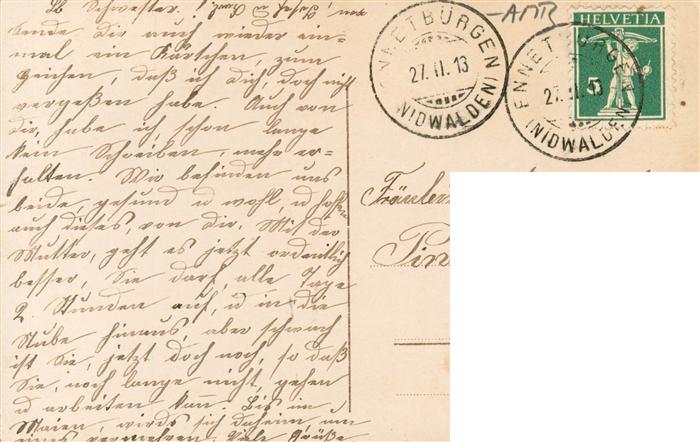 Lb Schwester!
Sende dir auch wieder ein-
mal ein Kärtchen, zum
Zeichen, daß ich dich, doch nicht
vergeßen habe. Auch von
dir, habe ich, schon lange
kein Schreiben, mehr er-
halten. Wir befinden uns
beide, gesund u wohl, u hoffen
auch dieses, von dir. Mit der
Mutter, geht es jetzt ordentlich
besser, Sie darf, alle Tage
2. Stunden auf, u in die
Stube hinaus, aber schwach
ist Sie, jetzt doch noch, so daß
Sie, noch lange nicht, gehen
u arbeiten kann. Bis, im
Maien, wirds sich daheim, um
eines vermehren. Viele Grüße
AMB
ENNETBÜRGEN
27.II.13
(NIDWALDEN)
HELVETIA
5
ENNETBÜRGEN
27.II.13
(NIDWALDEN)